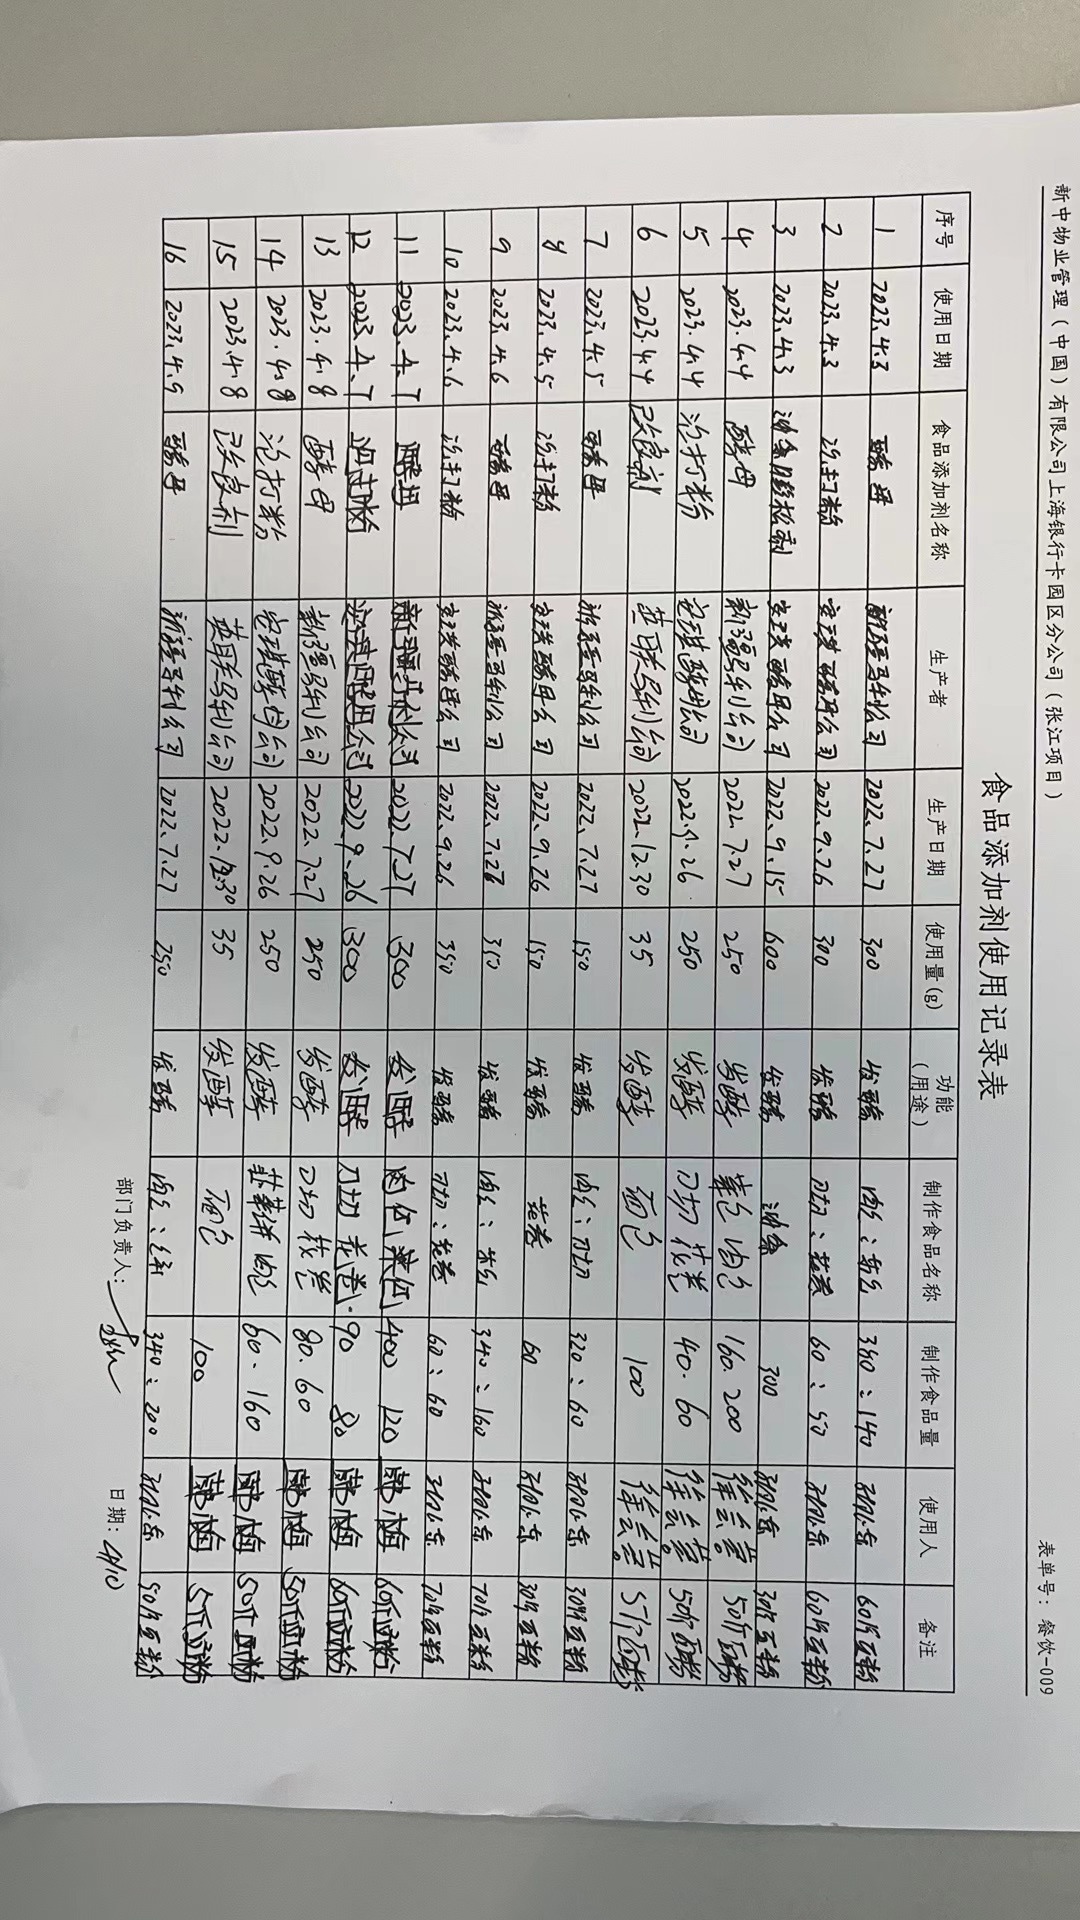 新中物业管理（中国）有限公司上海银行卡园区分公司（张江项目） 表单号：餐饮-009
食品添加剂使用记录表
序号 使用日期 食品添加剂名称 生产者 生产日期 使用量(g) 功能（用途） 制作食品名称 制作食品量 使用人 备注
1 2023.4.3 酵母 新疆马利公司 2022.7.27 300 发酵 肉包：菜包 380：140 60斤面粉
2 2023.4.3 泡打粉 安琪酵母公司 2022.9.26 300 发酵 刀切：花卷 60：50 60斤面粉
3 2023.4.3 油条膨松剂 安琪酵母公司 2022.9.15 600 发酵 油条 300 30斤面粉
4 2023.4.4 酵母 新疆马利公司 2022.7.27 250 发酵 菜包 肉包 160.200 50斤面粉
5 2023.4.4 泡打粉 安琪酵母公司 2022.9.26 250 发酵 刀切 花卷 40.60 50斤面粉
6 2023.4.4 改良剂 英联马利公司 2022.12.30 35 发酵 面包 100 5斤面粉
7 2023.4.5 酵母 新疆马利公司 2022.7.27 150 发酵 肉包：刀切 320：60 30斤面粉
8 2023.4.5 泡打粉 安琪酵母公司 2022.9.26 150 发酵 花卷 60 30斤面粉
9 2023.4.6 酵母 新疆马利公司 2022.7.28 350 发酵 肉包：菜包 340：160 70斤面粉
10 2023.4.6 泡打粉 安琪酵母公司 2022.9.26 350 发酵 刀切：花卷 60：60 70斤面粉
11 2023.4.7 酵母 新疆马利公司 2022.7.27 300 发酵 肉包 菜包 400 120 60斤面粉
12 2023.4.7 泡打粉 安琪酵母公司 2022.9.26 300 发酵 刀切 花卷 90 80 60斤面粉
13 2023.4.8 酵母 新疆马利公司 2022.7.27 250 发酵 刀切 花卷 80.60 50斤面粉
14 2023.4.8 泡打粉 安琪酵母公司 2022.9.26 250 发酵 韭菜饼 肉包 60.160 50斤面粉
15 2023.4.8 改良剂 英联马利公司 2022.12.30 35 发酵 面包 100 5斤面粉
16 2023.4.9 酵母 新疆马利公司 2022.7.27 250 发酵 肉包： 340：200 50斤面粉
部门负责人： 日期：4/10